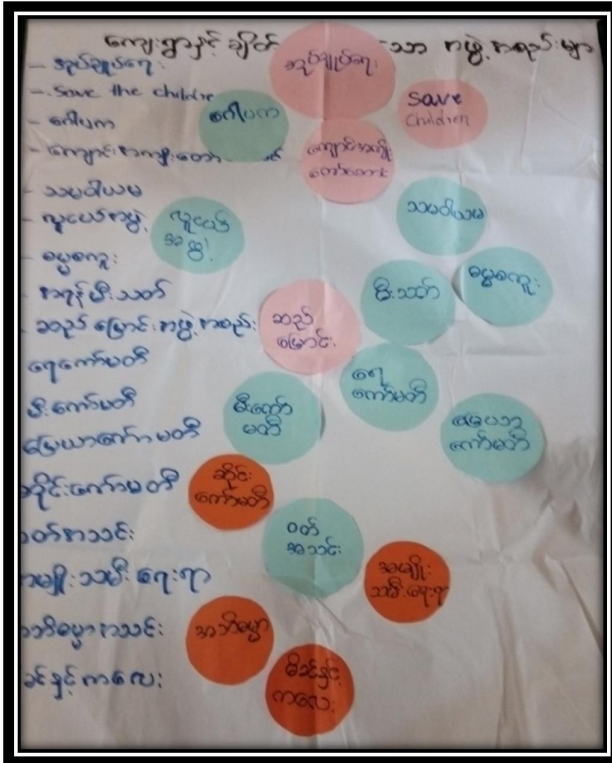 ကျေးရွာနှင့် ချိတ် သော အဖွဲ့အစည်းများ
- အုပ်ချုပ်ရေး
- Save the childre
- ဂေါပက
- ကျောင်းအကျိုးတော်
- သမဝါယမ
- လူငယ်အဖွဲ့
- ဓမ္မစကူး
- အရန်မီးသတ်
- ဆည်မြောင်းအဖွဲ့အစည်း
ရေကော်မတီ
မီးကော်မတီ
မြေယာကော်မတီ
ဆိုင်းကော်မတီ
ဝတ်အသင်း
အမျိုးသမီးရေးရာ
အဘိဓမ္မာအသင်း
မိခင်နှင့်ကလေး
အုပ်ချုပ်ရေး
Save
Children
ဂေါပက
ကျောင်းအကျိုး
သမဝါယမ
လူငယ်
အဖွဲ့
မီးသတ်
ဓမ္မစကူး
ဆည်
မြောင်း
ရေ
ကော်မတီ
မီးကော်
မတီ
ကော်မတီ
ဆိုင်း
ကော်မတီ
ဝတ်
အသင်း
အမျိုး
သမီးရေးရာ
အဘိဓမ္မာ
မိခင်နှင့်
ကလေး